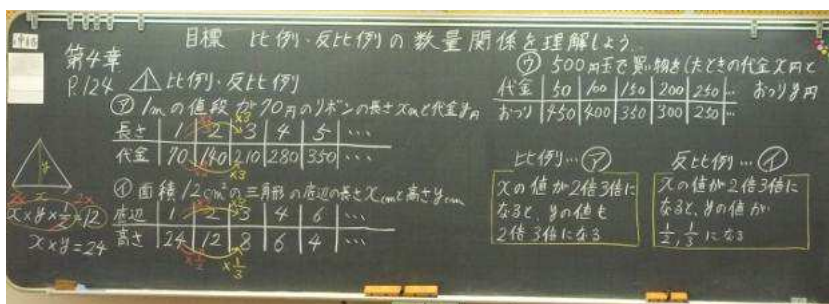 目標 比例・反比例の数量関係を理解しよう
第4章
P.124 比例・反比例
㋐ 1mの値段が70円のリボンの長さxmと代金y円
×2 ×3
長さ 1 2 3 4 5 …
代金 70 140 210 280 350 …
×2 ×3
㋑ 面積12cm²の三角形の底辺の長さxcmと高さycm
×2 ×3
底辺 1 2 3 4 6 …
高さ 24 12 8 6 4 …
×1/2 ×1/3
y
x
x×y×1/2=12
x×y=24
㋒ 500円玉で買い物をしたときの代金x円と
おつりy円
代金 50 100 150 200 250 …
おつり 450 400 350 300 250 …
比例…㋐
xの値が2倍3倍に
なると、yの値も
2倍3倍になる
反比例…㋑
xの値が2倍3倍に
なると、yの値が
1/2, 1/3 になる